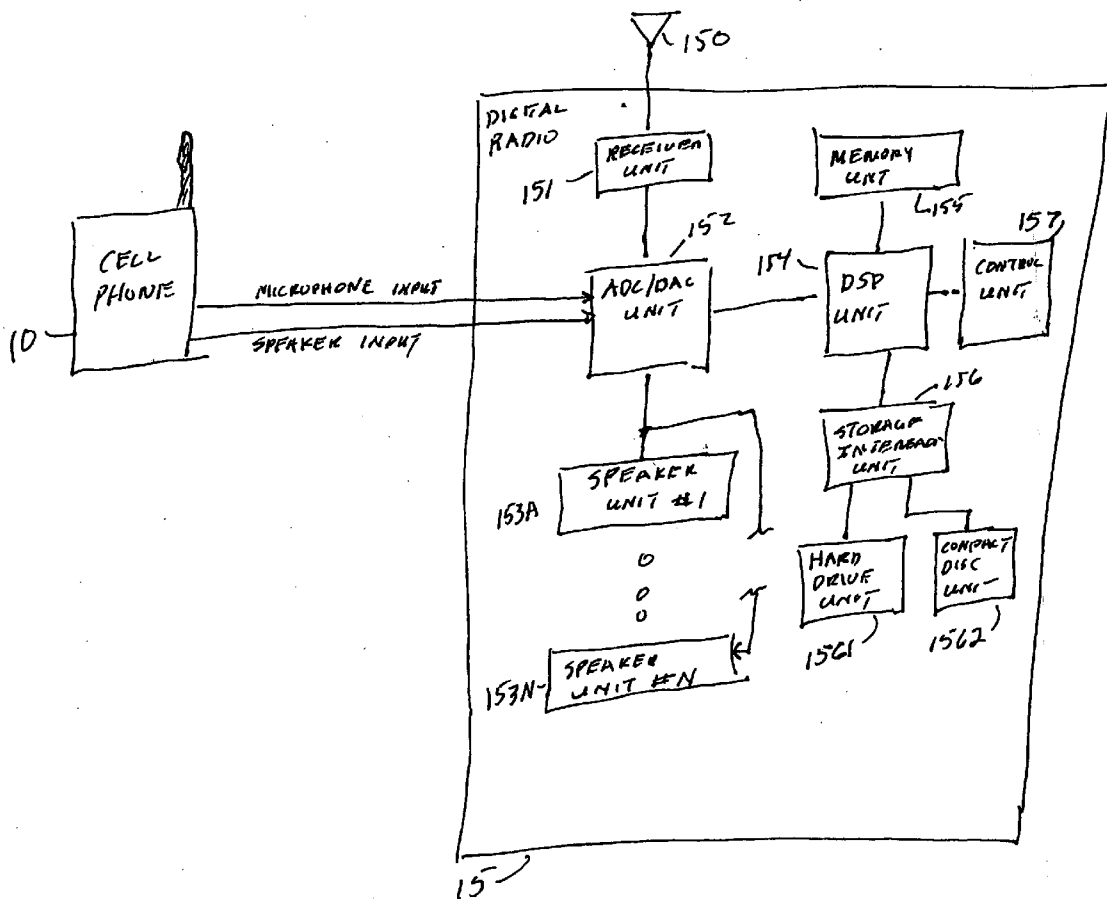 150
DIGITAL
RADIO
RECEIVER
UNIT
151
MEMORY
UNIT
155
CELL
PHONE
10
MICROPHONE INPUT
SPEAKER INPUT
152
ADC/DAC
UNIT
154
DSP
UNIT
157
CONTROL
UNIT
156
STORAGE
INTERFACE
UNIT
153A
SPEAKER
UNIT #1
HARD
DRIVE
UNIT
1561
COMPACT
DISC
UNIT
1562
153N
SPEAKER
UNIT #N
15